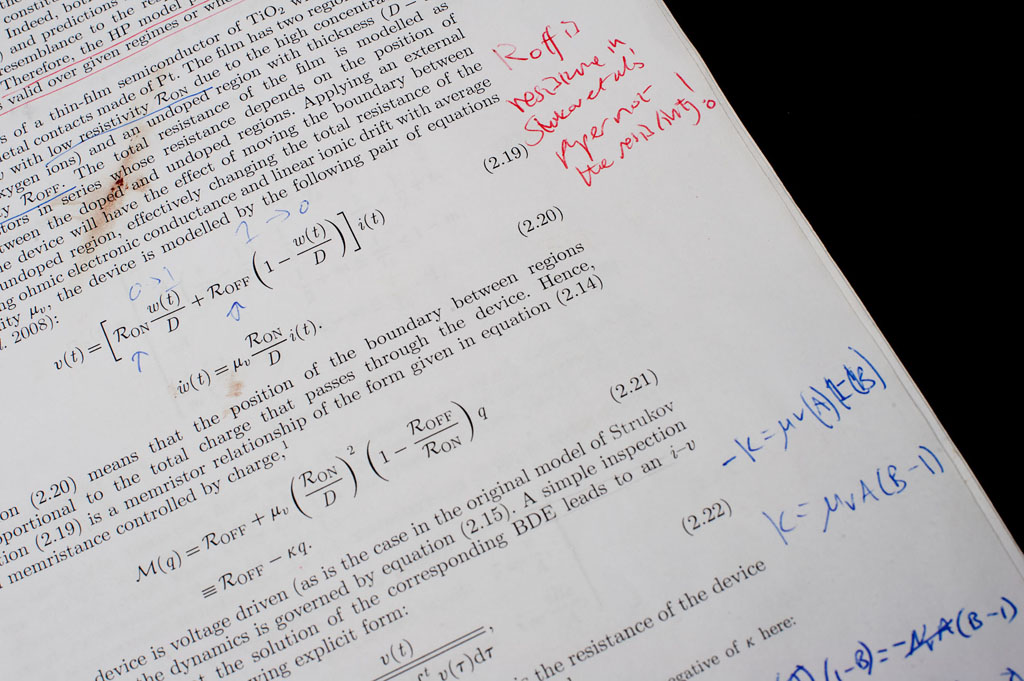 constit
Indeed, bot
) and predictions re
resemblance to the
Therefore, the HP model
s valid over given regimes or wh
s of a thin-film semiconductor of TiO₂
etal contacts made of Pt. The film has two region
with low resistivity R_ON due to the high concentra
xygen ions) and an undoped region with thickness (D −
y R_OFF. The total resistance of the film is modelled as
tors in series whose resistance depends on the position of
tween the doped and undoped regions. Applying an external
e device will have the effect of moving the boundary between
undoped region, effectively changing the total resistance of the
ng ohmic electronic conductance and linear ionic drift with average
ity μ_v, the device is modelled by the following pair of equations
. 2008):
Roff is
resistance in
Strukov et als
paper not
the resistivity!
0→1
1→0
v(t) = [R_ON w(t)/D + R_OFF (1 − w(t)/D)] i(t) (2.19)
ẇ(t) = μ_v R_ON/D i(t). (2.20)
on (2.20) means that the position of the boundary between regions
oportional to the total charge that passes through the device. Hence,
tion (2.19) is a memristor relationship of the form given in equation (2.14)
memristance controlled by charge.¹
M(q) = R_OFF + μ_v (R_ON/D)² (1 − R_OFF/R_ON) q (2.21)
≡ R_OFF − κq.
device is voltage driven (as is the case in the original model of Strukov
the dynamics is governed by equation (2.15). A simple inspection
t the solution of the corresponding BDE leads to an i–v
wing explicit form: (2.22)
v(t)
v(τ)dτ
is the resistance of the device
egative of κ here:
k = μvA(B-1)
(1-B) = -μvA(B-1)